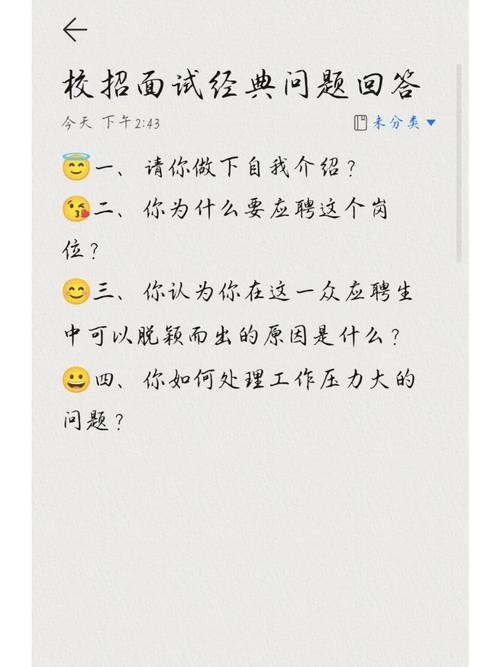 校招面试经典问题回答
今天 下午2:43
未分类
😇一、请你做下自我介绍?
😘二、你为什么要应聘这个岗
位?
😊三、你认为你在这一众应聘生
中可以脱颖而出的原因是什么?
😀四、你如何处理工作压力大的
问题?